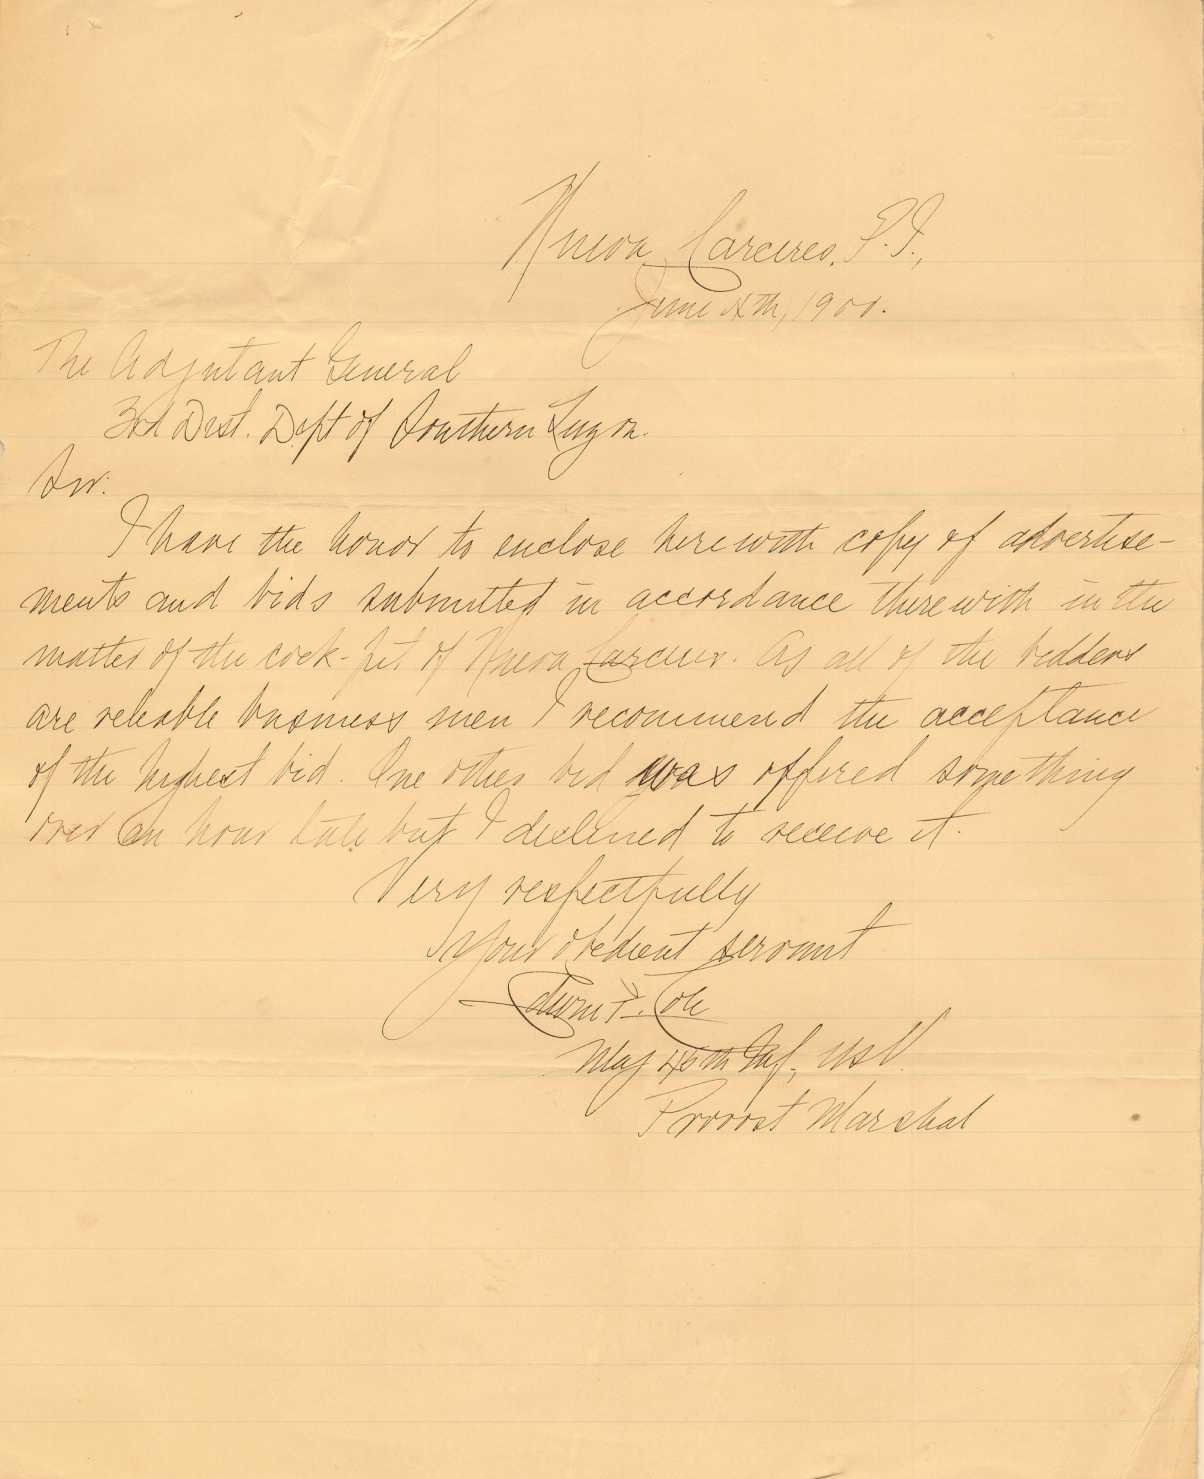 Nueva Carceres, P.I.,
June 4th, 1900.
The Adjutant General
3rd Dist. Dept of Southern Luzon.
Sir:
I have the honor to enclose herewith copy of advertise-
ments and bids submitted in accordance therewith in the
matter of the cock-pit of Nueva Carceres. As all of the bidders
are reliable business men I recommend the acceptance
of the highest bid. One other bid was offered something
over an hour late but I declined to receive it.
Very respectfully
Your obedient servant
Edwin T. Cole
Maj 46th Inf., USV.
Provost Marshal